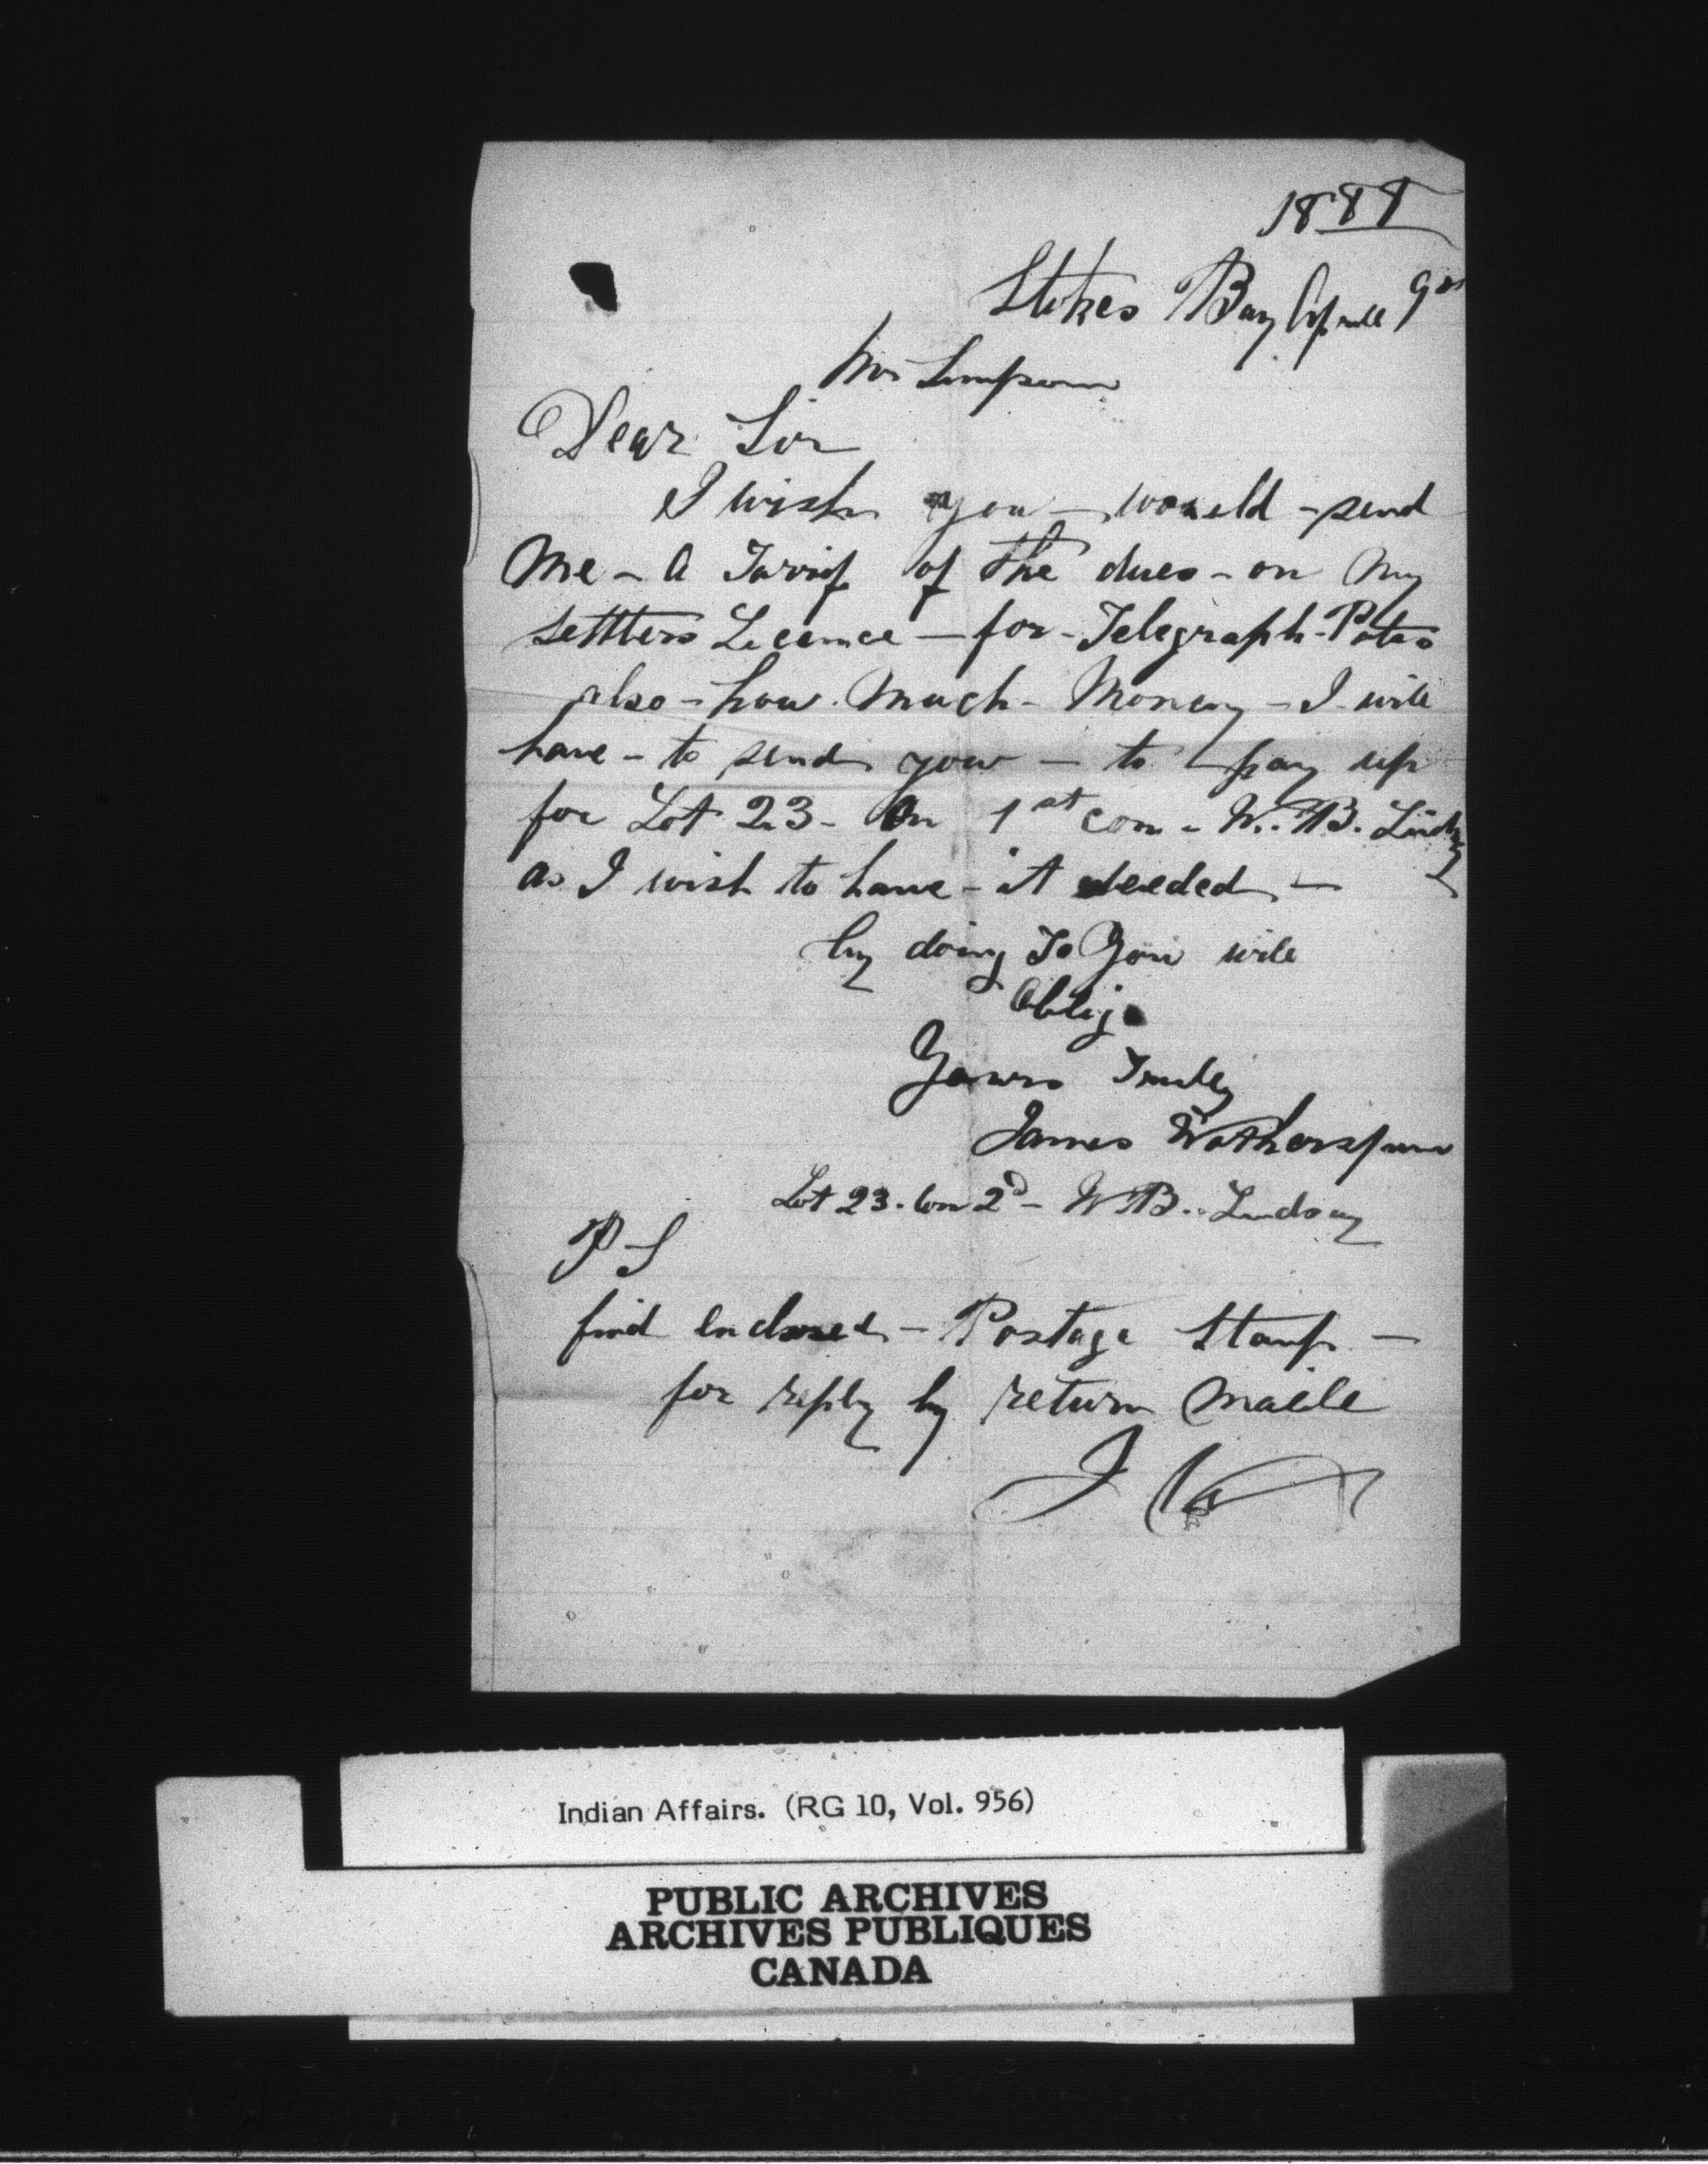 1888
Stokes Bay Aprill 9
Mr Simpson
Dear Sir
I wish you - would - send
Me - A Tarrif of the dues - on My
settlers Licence - for - Telegraph - Poles
also - how - Much - Money - I - will
have - to send you - to pay up
for Lot 23 - On 1st con - W. B. Lindsay
as I wish to have - it deeded -
by doing So You will
Oblige
Yours Truley
James Wotherspoon
Lot 23 - Con 2d - W B. Lindsay
P S
find Enclosed - Postage Stamp -
for reply by return Maile
J W
Indian Affairs. (RG 10, Vol. 956)
PUBLIC ARCHIVES
ARCHIVES PUBLIQUES
CANADA